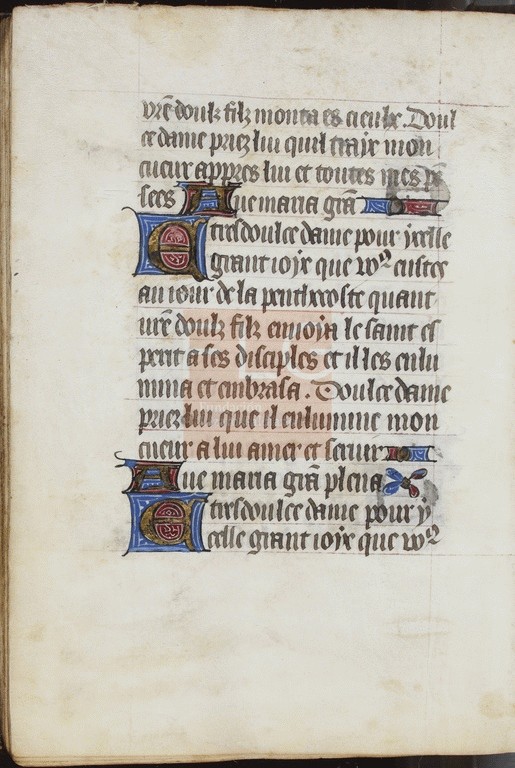 vr̃e doulz filz monta es cieulx. Doul
ce dame priez lui quil traye mon
cueur appres lui et toutes mes pẽ
sees Aue maria gr̃a
E tresdoulce dame pour ycelle
grant ioye que voꝰ eustes
au iour de la penthecoste quant
vr̃e doulz filz enuoya le saint es
perit a ses disciples et il les enlu
mina et embrasa. Doulce dame
priez lui que il enlumine mon
cueur a lui amer et seruir
Aue maria gr̃a plena
E tresdoulce dame pour y
celle grant ioye que voꝰ